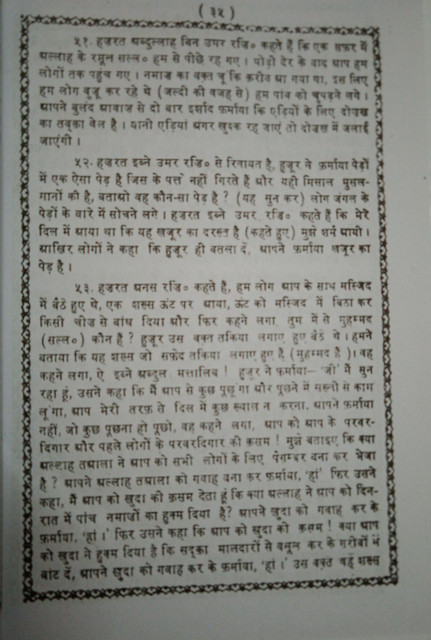 ( ३५ )
५१. हज़रत अब्दुल्लाह बिन उमर रज़ि० कहते हैं कि एक सफ़र में
अल्लाह के रसूल सल्ल० हम से पीछे रह गए । थोड़ी देर के बाद आप हम
लोगों तक पहुंच गए । नमाज का वक्त चू कि क़रीब आ गया था, इस लिए
हम लोग वुज़ू कर रहे थे (जल्दी की वजह से) हम पांव को चुपड़ने लगे ।
आपने बुलंद आवाज़ से दो बार इर्शाद फ़र्माया कि एड़ियों के लिए दोज़ख
का तबक़ा वेल है । यानी एड़ियां अगर खुश्क रह जाएं तो दोज़ख में जलाई
जाएंगी ।
५२. हज़रत इब्ने उमर रज़ि० से रिवायत है, हुज़ूर ने फ़र्माया पेड़ों
में एक ऐसा पेड़ है जिस के पत्ते नहीं गिरते हैं और यही मिसाल मुसल-
मानों की है, बताओ वह कौन-सा पेड़ है ? (यह सुन कर) लोग जंगल के
पेड़ों के बारे में सोचने लगे । हज़रत इब्ने उमर रज़ि० कहते हैं कि मेरे
दिल में आया था कि यह खजूर का दरख़्त है (कहते हुए) मुझे शर्म आयी ।
आखिर लोगों ने कहा कि हुज़ूर ही बतला दें, आपने फ़र्माया खजूर का
पेड़ है ।
५३. हज़रत अनस रज़ि० कहते है, हम लोग आप के साथ मस्जिद
में बैठे हुए थे, एक शख्स ऊंट पर आया, ऊंट को मस्जिद में बिठा कर
किसी चीज़ से बांध दिया और फिर कहने लगा तुम में से मुहम्मद
(सल्ल०) कौन है ? हुज़ूर उस वक्त तकिया लगाए हुए बैठे थे । हमने
बताया कि यह शख्स जो सफ़ेद तकिया लगाए हुए है (मुहम्मद है )। वह
कहने लगा, ऐ इब्ने अब्दुल मत्तालिब ! हुज़ूर ने फ़र्माया— 'जी' मैं सुन
रहा हूं, उसने कहा कि मैं आप से कुछ पूछू गा और पूछने में सख्ती से काम
लू गा, आप मेरी तरफ़ से दिल में कुछ ख्याल न करना. आपने फ़र्माया
नहीं, जो कुछ पूछना हो पूछो, वह कहने लगा, आप को आप के परवर-
दिगार और पहले लोगों के परवरदिगार की क़सम ! मुझे बताइए कि क्या
अल्लाह तआला ने आप को सभी लोगों के लिए पैग़म्बर बना कर भेजा
है ? आपने अल्लाह तआला को गवाह बना कर फ़र्माया, 'हां' फिर उसने
कहा, मैं आप को खुदा की क़सम देता हूं कि क्या अल्लाह ने आप को दिन-
रात में पांच नमाज़ों का हुक्म दिया है? आपने खुदा को गवाह कर के
फ़र्माया, 'हां ।' फिर उसने कहा कि आप को खुदा की क़सम ! क्या आप
को खुदा ने हुक्म दिया है कि सद्क़ा मालदारों से वसूल कर के ग़रीबों में
बांट दें, आपने खुदा को गवाह कर के फ़र्माया, 'हां ।' उस वक्त वह शख्स